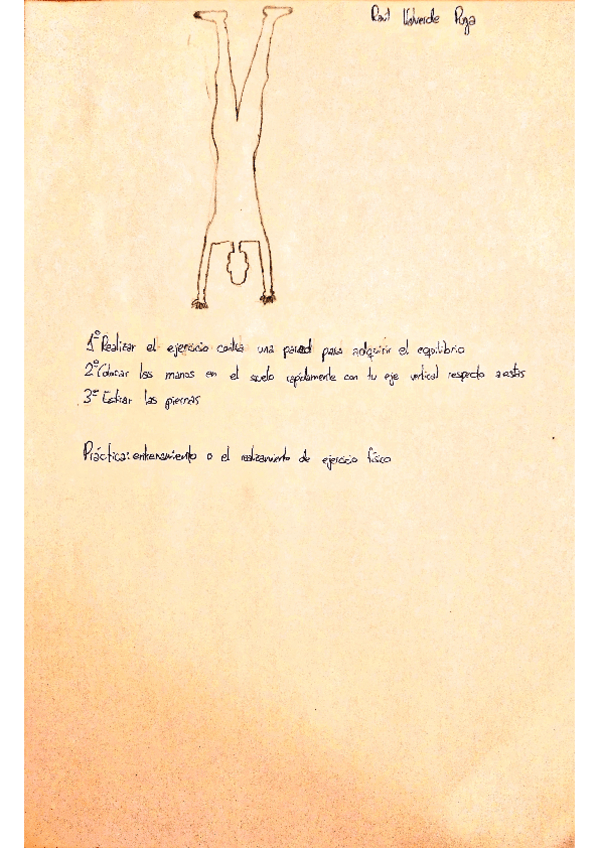 Raúl Valverde Puga
1º Realizar el ejercicio contra una pared para adquirir el equilibrio
2º Colocar las manos en el suelo rapidamente con tu eje vertical respecto a estas
3º Estirar las piernas
Práctica: entrenamiento o el realizamiento de ejercicio físico